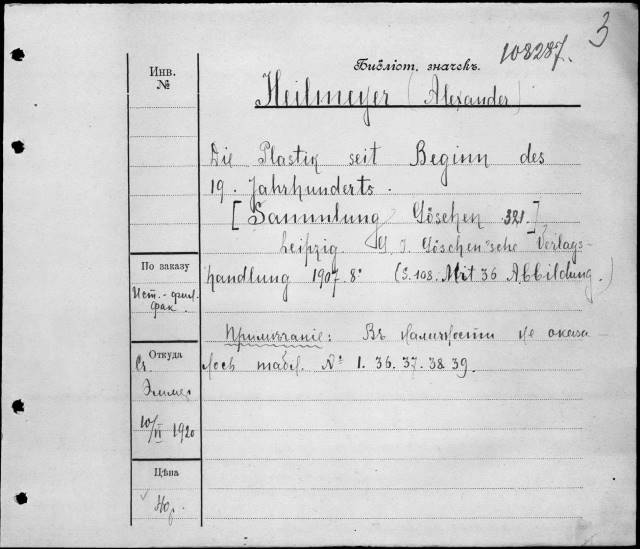 3
108287.
Библіот. значекъ.
Инв.
№
Heilmeyer (Alexander)
Die Plastik seit Beginn des
19. Jahrhunderts.
[Sammlung Göschen 321.]
Leipzig. G. J. Göschen'sche Verlags-
handlung 1907. 8° (S. 108. Mit 36 Abbildung.)
По заказу
Ист.-фил.
фак.
Примѣчаніе: Въ наличности не оказа-
лось табл. № 1. 36. 37. 38. 39.
Откуда
10/VI 1920
Цѣна